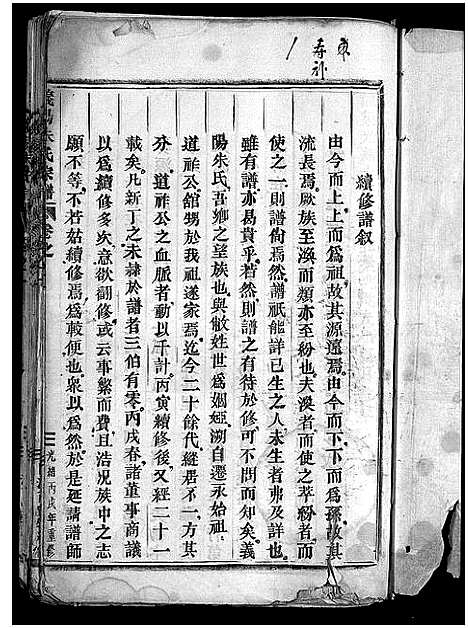 東
壽祁
續修譜叙
由今而上上而爲祖故其源遠焉由今而下下而爲孫故其
流長焉厥族至渙而類亦至紛也夫渙者而使之萃紛者而
使之一則譜尙焉然譜祇能詳已生之人未生者弗及詳也
雖有譜亦曷貴乎若然則譜之有待於修可不問而知矣義
陽朱氏吾鄉之望族也與敝姓世爲姻婭溯自遷永始祖
道祚公館甥於我祖遂家焉迄今二十餘代縱居不一方其
分 道祚公之血脈者動以千計丙寅續修後又經二十一
載矣凡新丁之未隷於譜者三伯有零丙戌春諸董事商議
以爲續修多矣意欲翻修或云事繁而費且浩況族中之志
願不等不若姑續修焉爲較便也衆以爲然於是延請譜師
義陽朱氏宗譜 卷之
光緒丙戌年重修